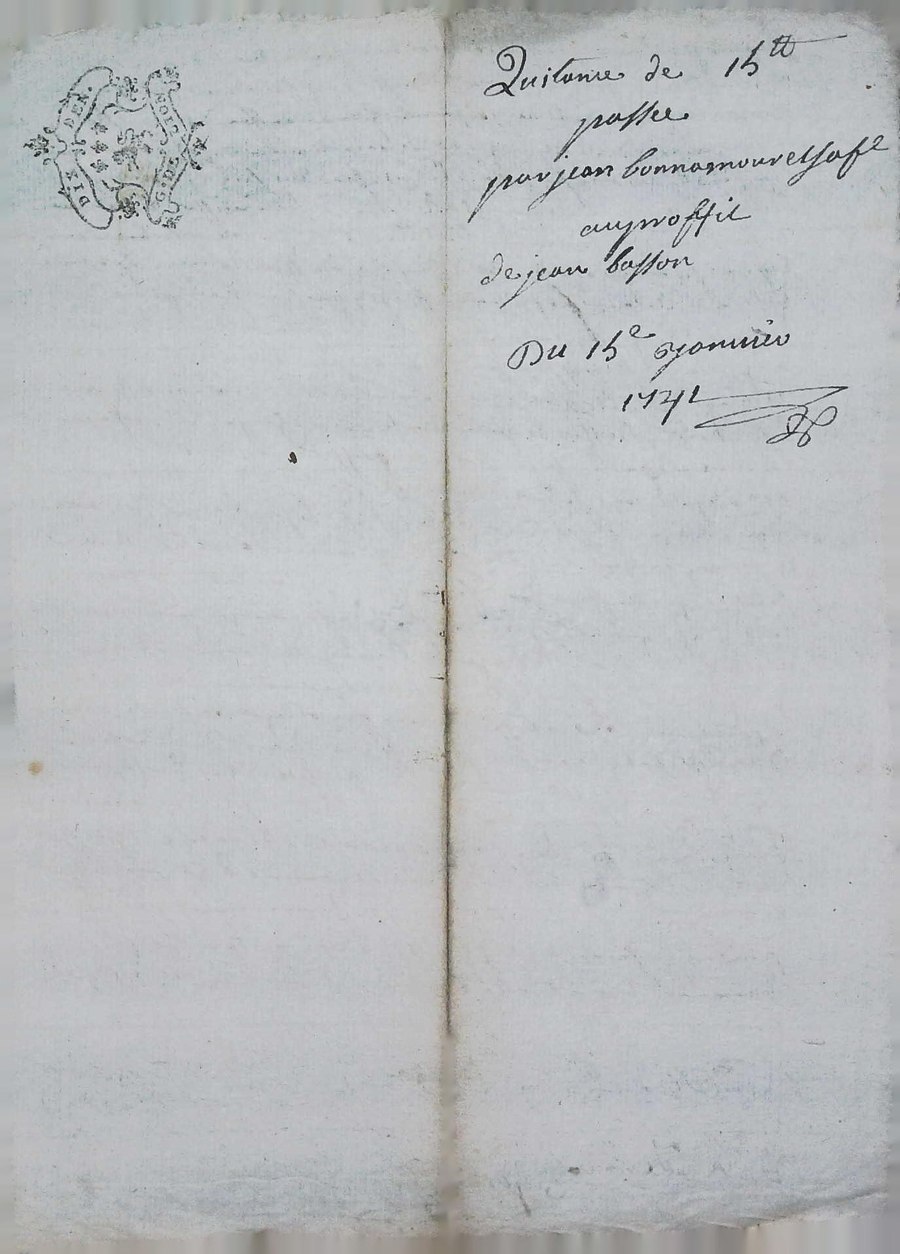 DIX DEN.
NOIS
G. DE
Quitance de 15 tt
passee
par jean bonnamour et sa fe
au proffit
de jean basson
Du 15e janvier
1741